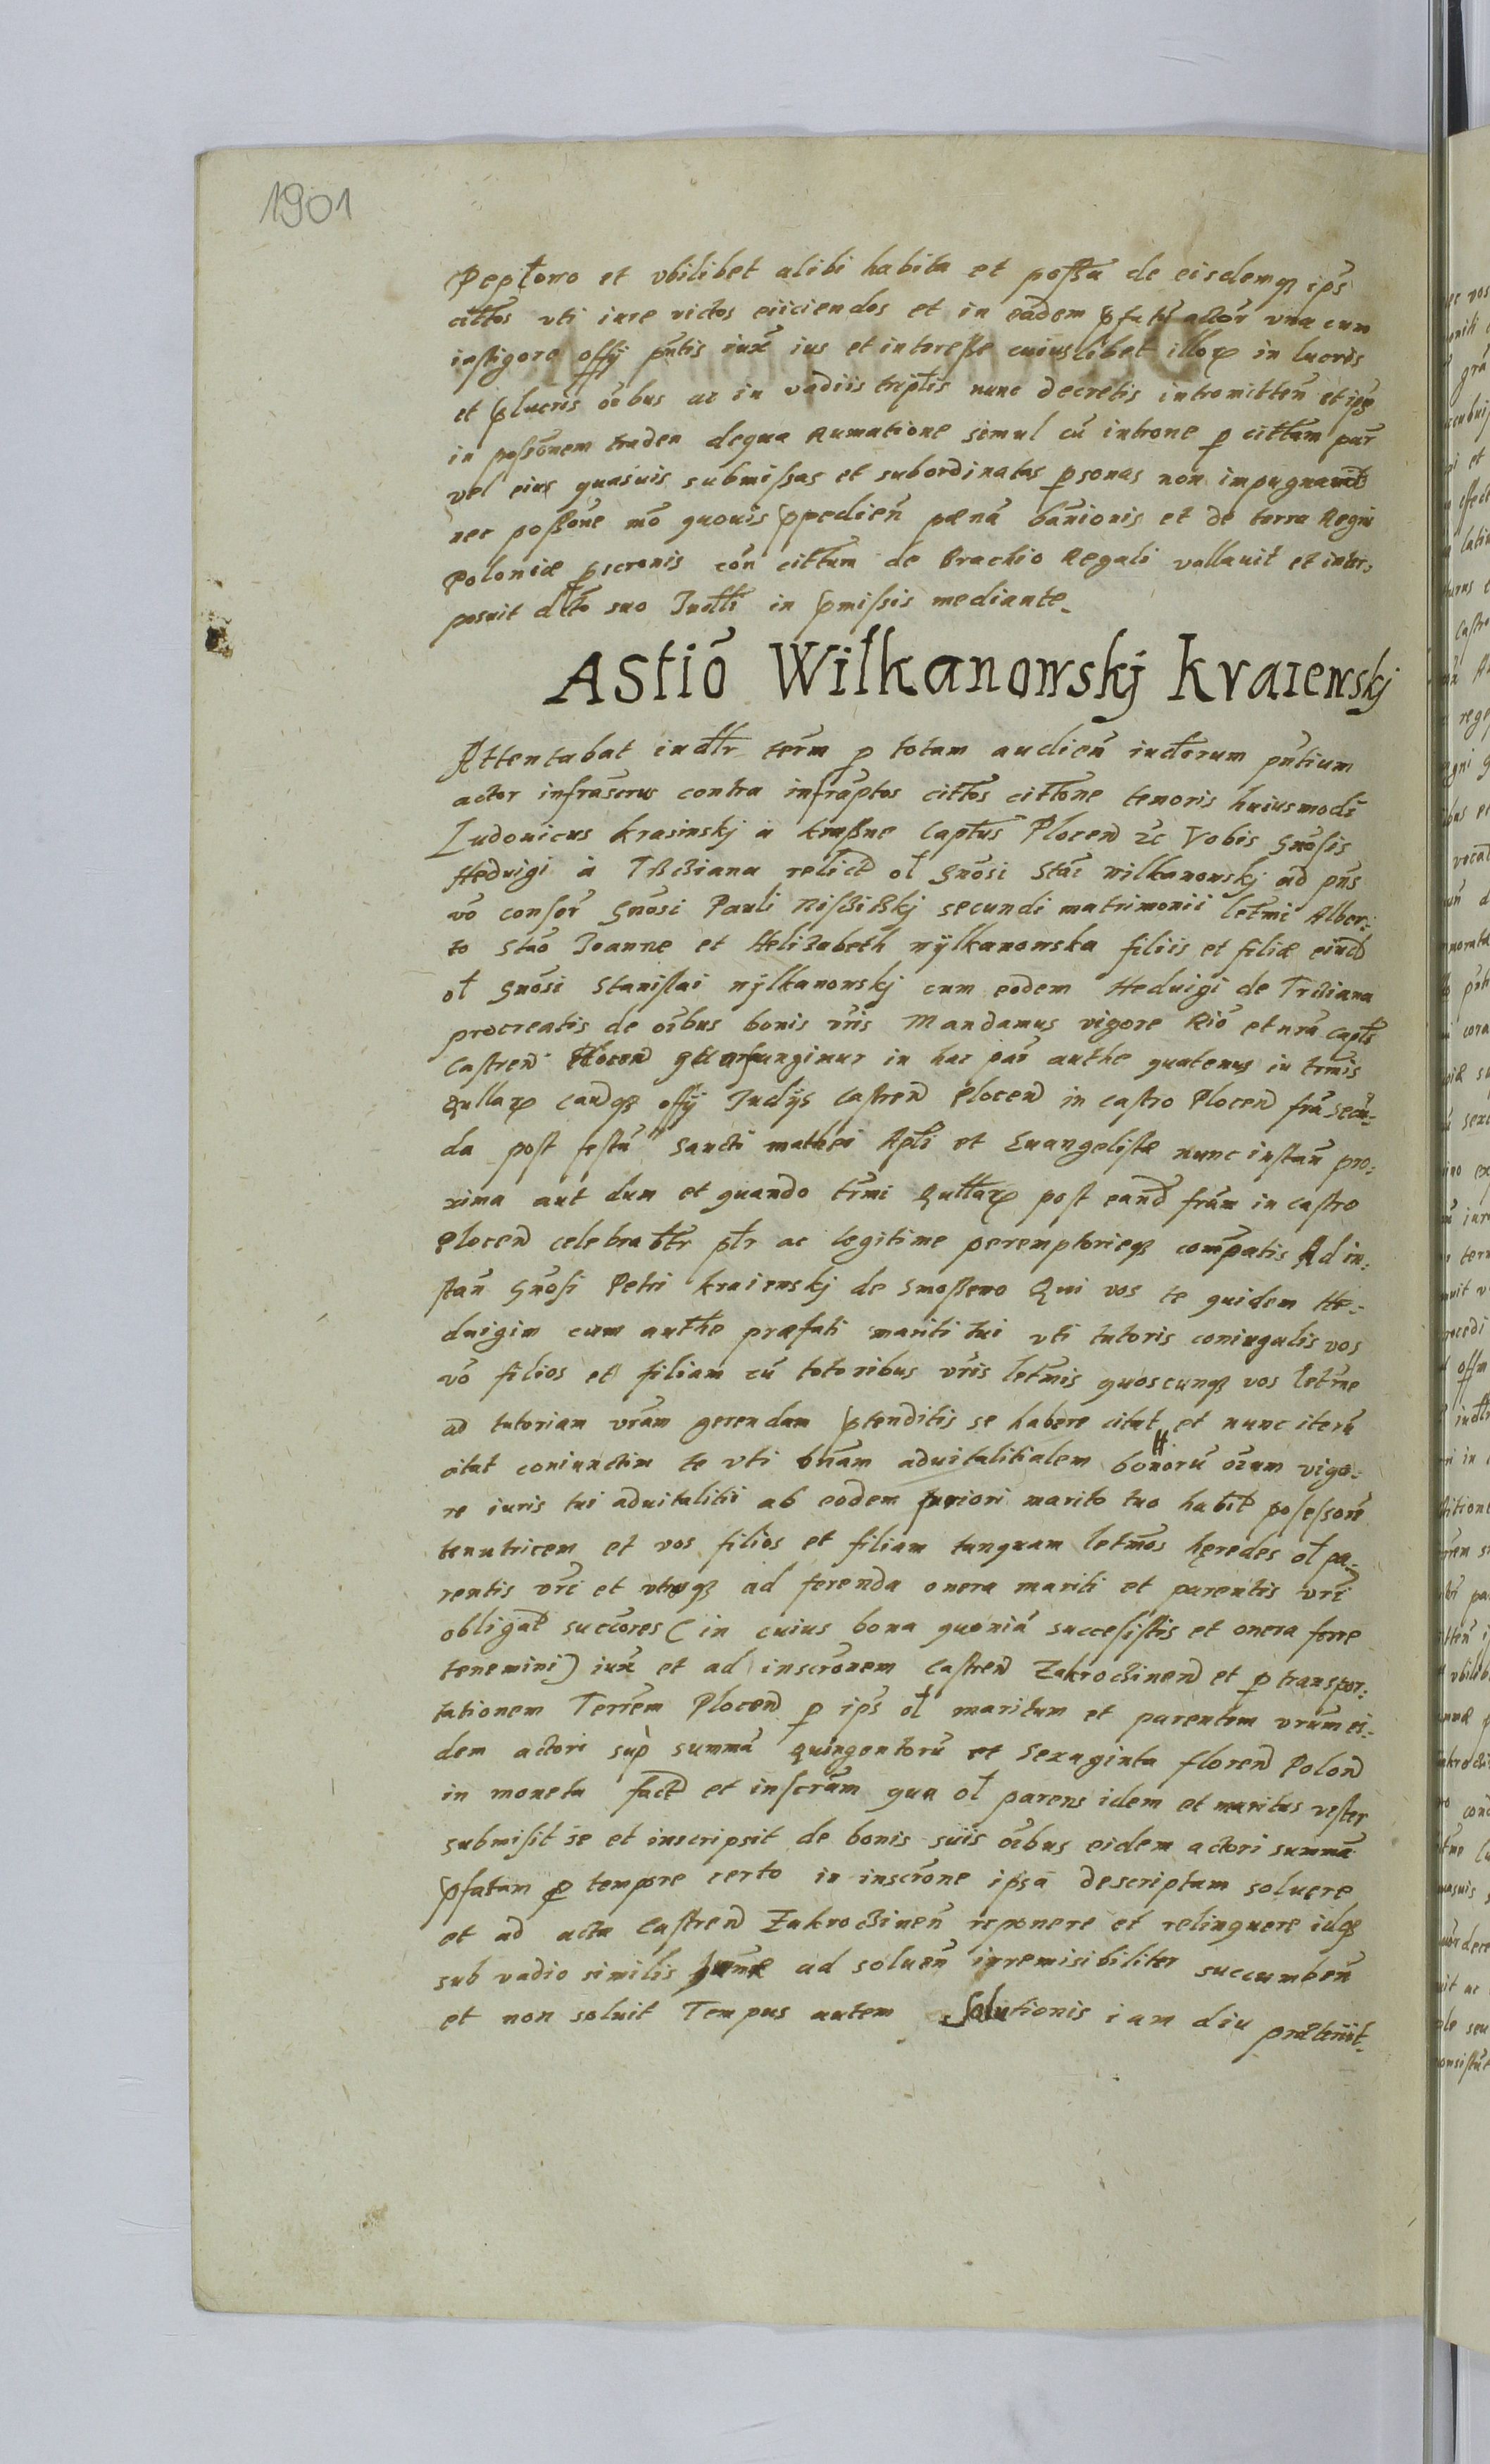 1901
Peplowo et vbilibet alibi habita et possa de eisdemq3 ips
cittos vti iure victos eiiciendos et in eadem pfatu actor vna cum
instigore offy pntis iux ius et interesse cuiuslibet illor in lucris
et plucris oibus ac in vadiis triplis nunc decretis intromitten et ips
in possonem traden degua Rumatione simul cu introne p cittam par
vel eius quasuis submissas et subordinatas psonas non impugnand
nec possone mo quouis ppedien pæna banionis et de terra Regni
Poloniæ pscronis con cittum de Brachio Regali vallauit et inter,
posuit dtto suo Juctti in pmissis mediante.
Astio Wilkanowskj Kraiewskj
Attentabat iudtr term p totam audien iudiorum pntium
actor infrascrus contra infraptos cittos cittone tenoris huiusmodi
Ludouicus Krasinskj a Krassne Captus Plocen 2c Vobis Gnosis
Heduigi a relict ol Gnosi Stai wilkanowskj ad pns
vo consor Gnosi Pauli secundi matrimonii letmi Alber:
to Stao Joanne et Helizabeth wylkanowska filiis et filiæ eiud
ol Gnosi Stanislai wylkanowskj cum eodem Heduigi de Trziana
procreatis de oibus bonis vris Mandamus vigore Rio et nra capts
Castren Plocen qua fungimur in hac par authe quatenus in trmis
Qullar caudq3 offy Judys Castren Plocen in castro Plocen fra secu-
da post festu Sancti mathei Apli et Euangelistæ nunc instan pro:
xima aut dum et quando trmi Qultar post eand fram in castro
Plocen celebrabtr ptr ac legitime peremptorieq3 compatis Ad in:
stan Gnosi Petri kraiewskj de Smossewo Qui vos te quidem He-
duigim cum authe præfati mariti tui vti tutoris coniugalis vos
vo filios et filiam cu totoribus vris letmis quoscunq3 vos letme
ad tutoriam vram gerendam ptenditis se habere citat et nunc iteru
citat coniunctim te vti bnam aduitalitialem bonoru oium vigo:
re iuris tui aduitalitii ab eodem priori marito tuo habit posessore
tenutricem et vos filios et filiam tanquam letmos hęredes ol pa-
rentis vri et vtrq3 ad ferenda onera mariti et parentis vri
obligat succores (in cuius bona quonia successistis et onera ferre
tenemini) iux et ad inscronem castren Zakroczinen et p transpor:
tationem Terrem Plocen p ips ol maritum et parentem vrum ei-
dem actori sup summa Quingentoru et Sexaginta floren Polon
in moneta fact et inscram qua ol parens idem et maritus vester
submisit se et inscripsit de bonis suis oibus eidem actori summa
pfatam p tempore certo in inscrone ipsa descriptam soluere
et ad acta Castren Zakroczinen reponere et relinquere idq3
sub vadio similis sumæ ad soluen irremisibiliter succumben
et non soluit Tempus autem Solutionis iam diu præteriit.